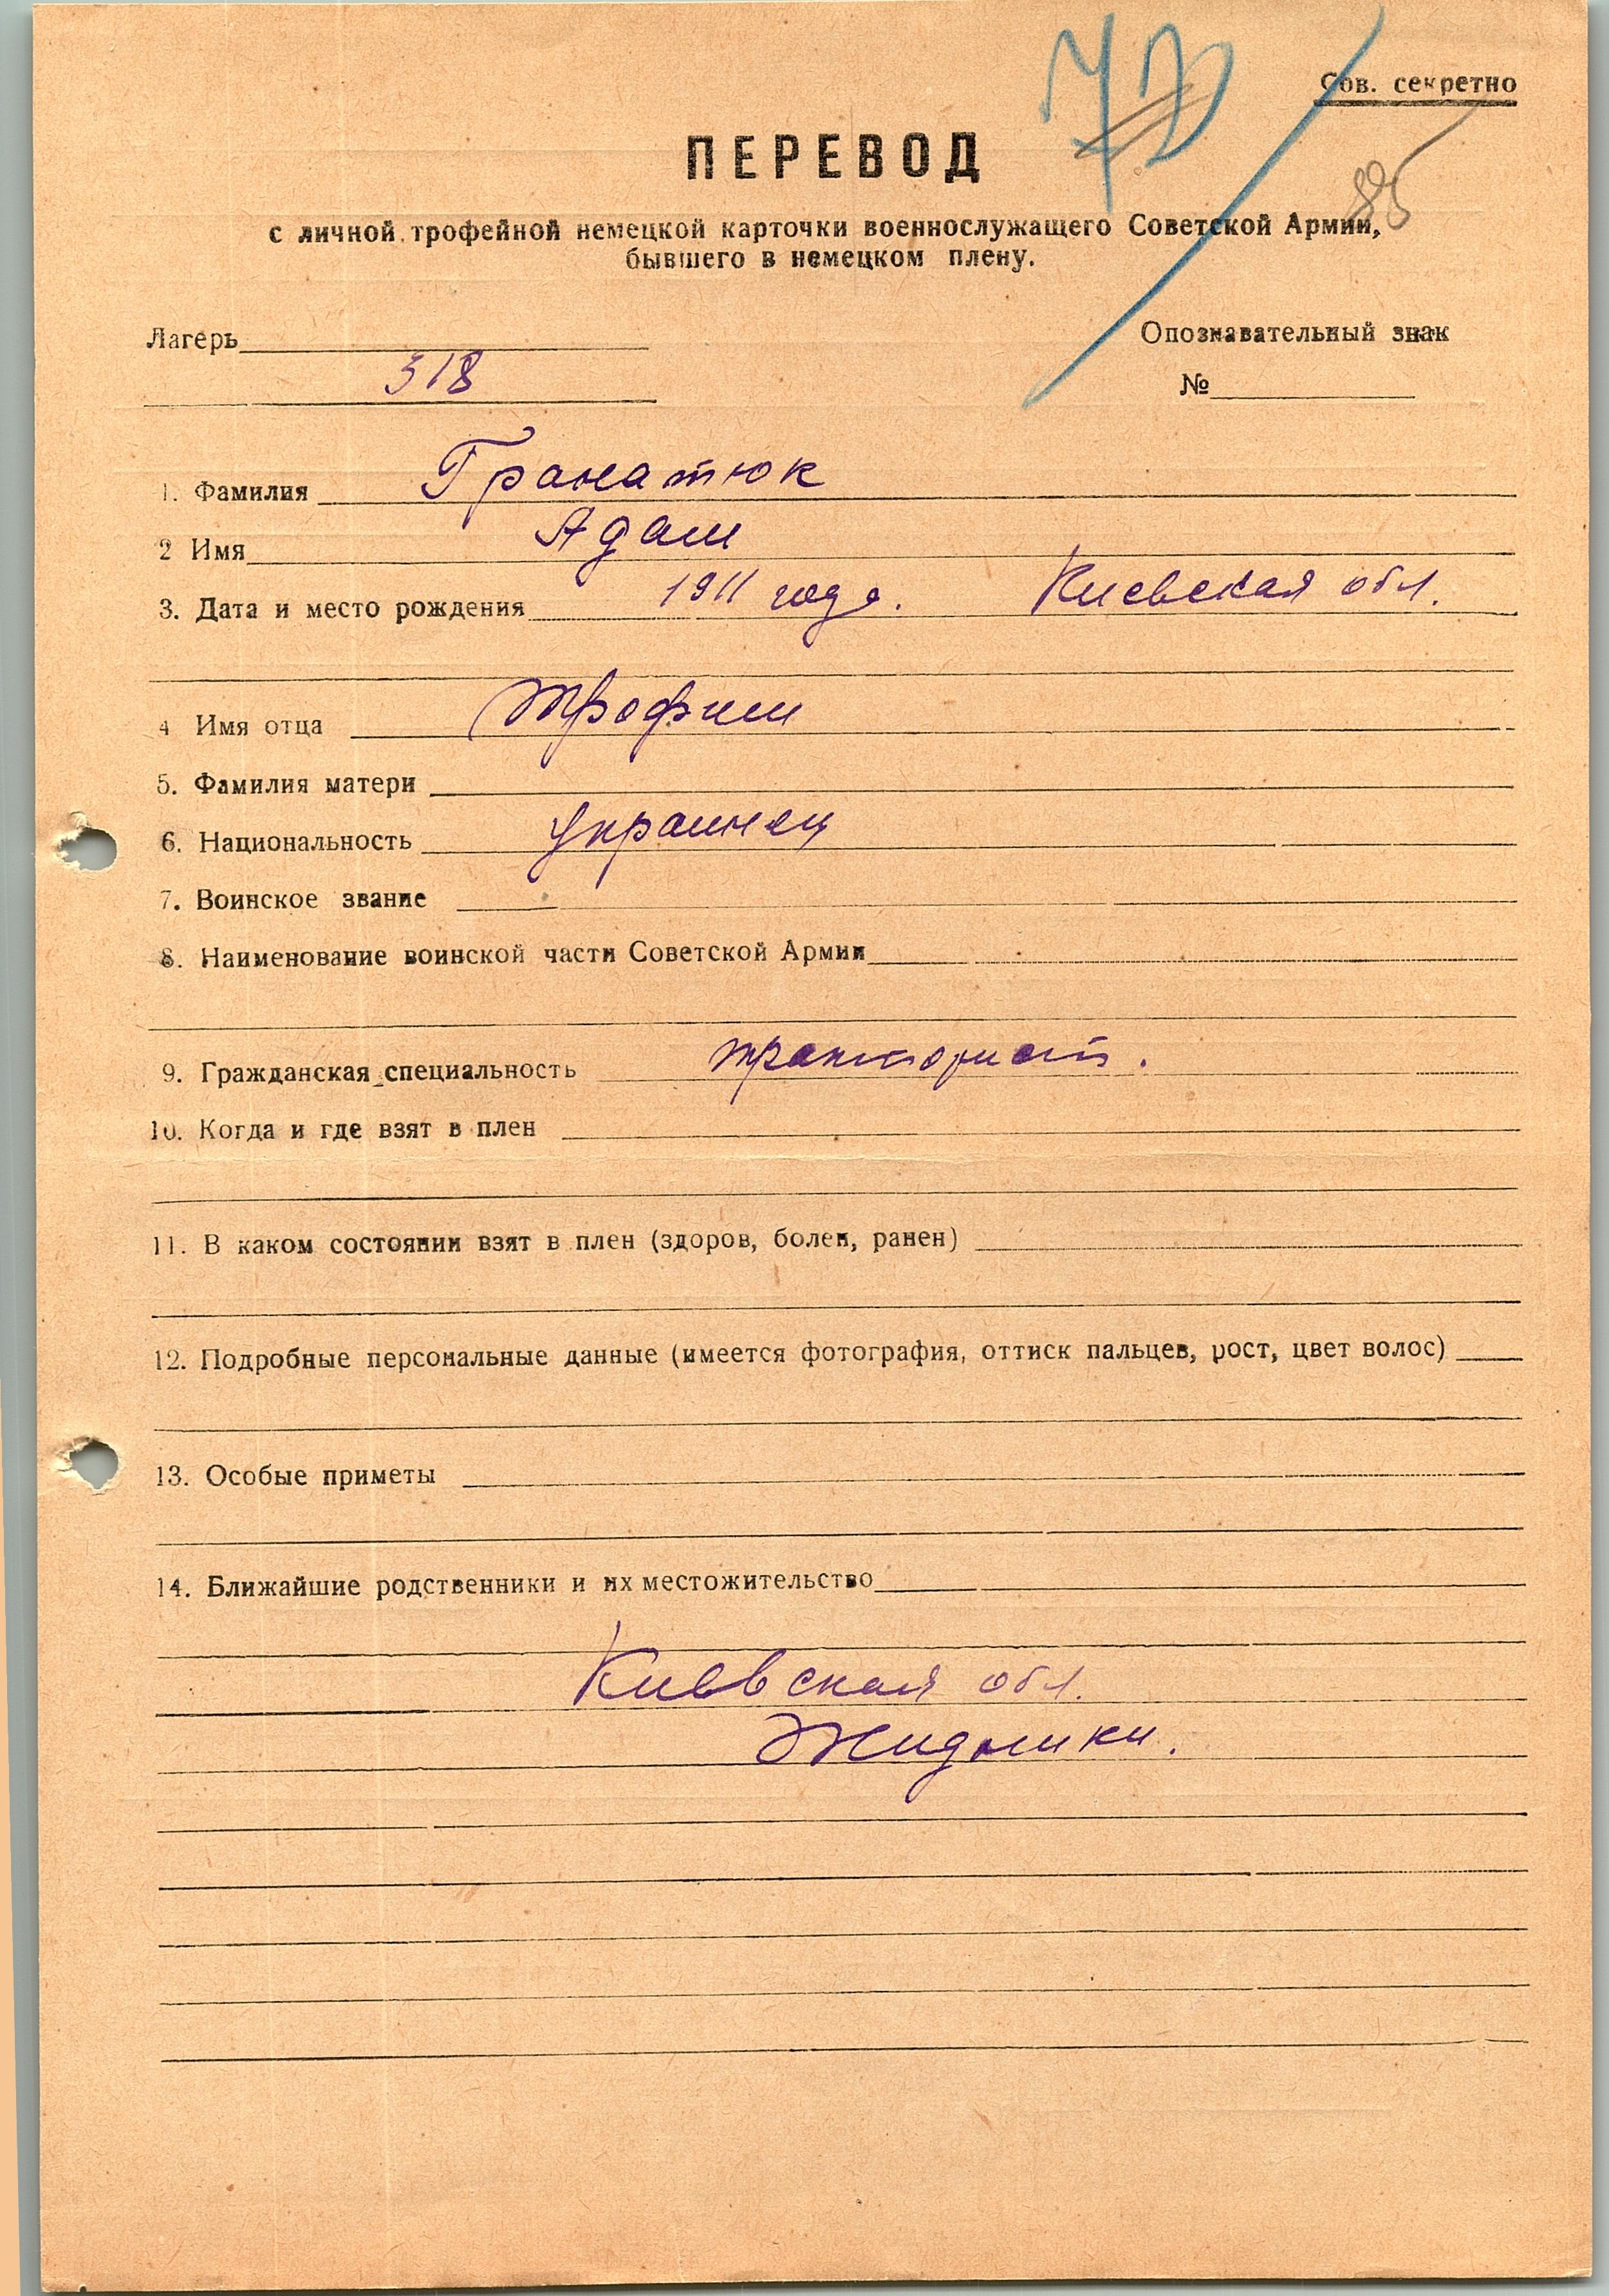 Сов. секретно
ПЕРЕВОД
85
с личной трофейной немецкой карточки военнослужащего Советской Армии,
бывшего в немецком плену.
Лагерь
Опознавательный знак
318
№
1. Фамилия Гранатюк
2 Имя Адам
3. Дата и место рождения 1911 года. Киевская обл.
4 Имя отца Трофим
5. Фамилия матери
6. Национальность украинец
7. Воинское звание
8. Наименование воинской части Советской Армии
9. Гражданская специальность тракторист.
10. Когда и где взят в плен
11. В каком состоянии взят в плен (здоров, болен, ранен)
12. Подробные персональные данные (имеется фотография, оттиск пальцев, рост, цвет волос)
13. Особые приметы
14. Ближайшие родственники и их местожительство
Киевская обл.